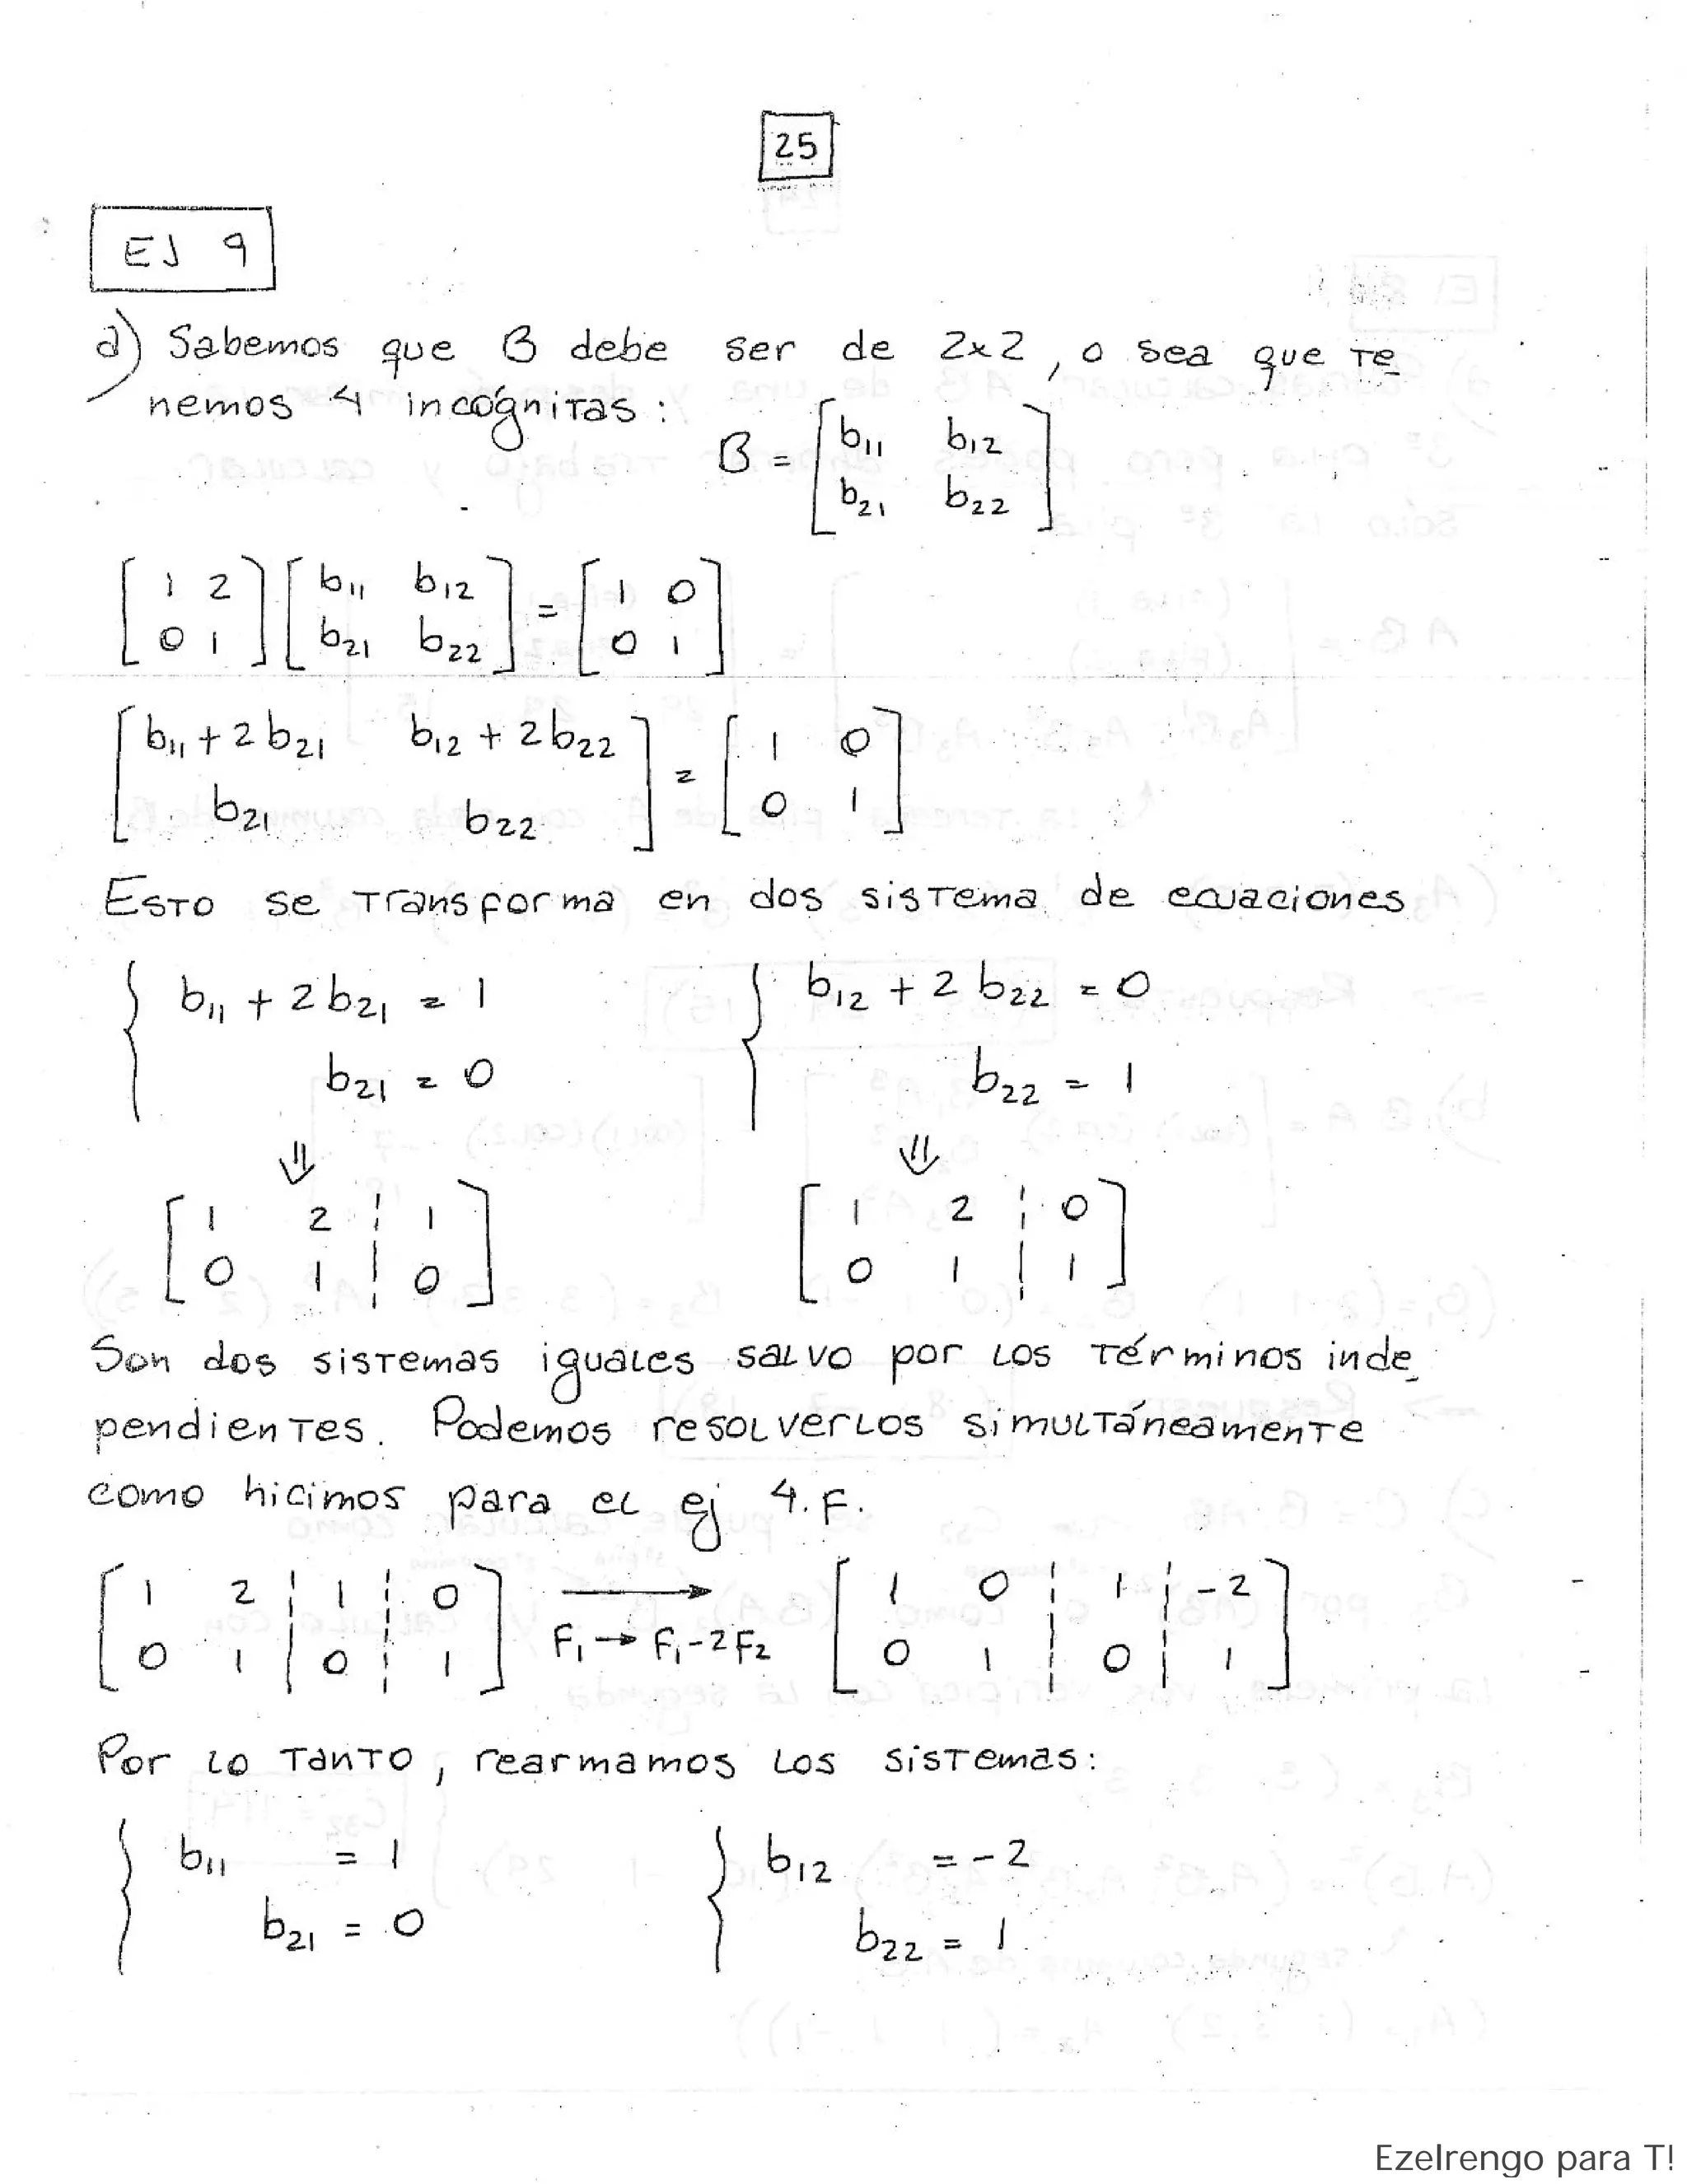 25
EJ 9
a) Sabemos que B debe ser de 2x2, o sea que te
nemos 4 incógnitas:
B = [ b11 b12
b21 b22 ]
[ 1 2 ] [ b11 b12 ] = [ 1 0 ]
[ 0 1 ] [ b21 b22 ] [ 0 1 ]
[ b11 + 2b21 b12 + 2b22 ] = [ 1 0 ]
[ b21 b22 ] [ 0 1 ]
Esto se transforma en dos sistema de ecuaciones
{ b11 + 2b21 = 1 { b12 + 2b22 = 0
b21 = 0 b22 = 1
⇓ ⇓
[ 1 2 ¦ 1 ] [ 1 2 ¦ 0 ]
[ 0 1 ¦ 0 ] [ 0 1 ¦ 1 ]
Son dos sistemas iguales salvo por los términos inde
pendientes. Podemos resolverlos simultáneamente
como hicimos para el ej 4.F.
[ 1 2 ¦ 1 ¦ 0 ] → [ 1 0 ¦ 1 ¦ -2 ]
[ 0 1 ¦ 0 ¦ 1 ] F1 → F1-2F2 [ 0 1 ¦ 0 ¦ 1 ]
Por lo tanto, rearmamos los sistemas:
{ b11 = 1 { b12 = -2
b21 = 0 b22 = 1
Ezelrengo para T!